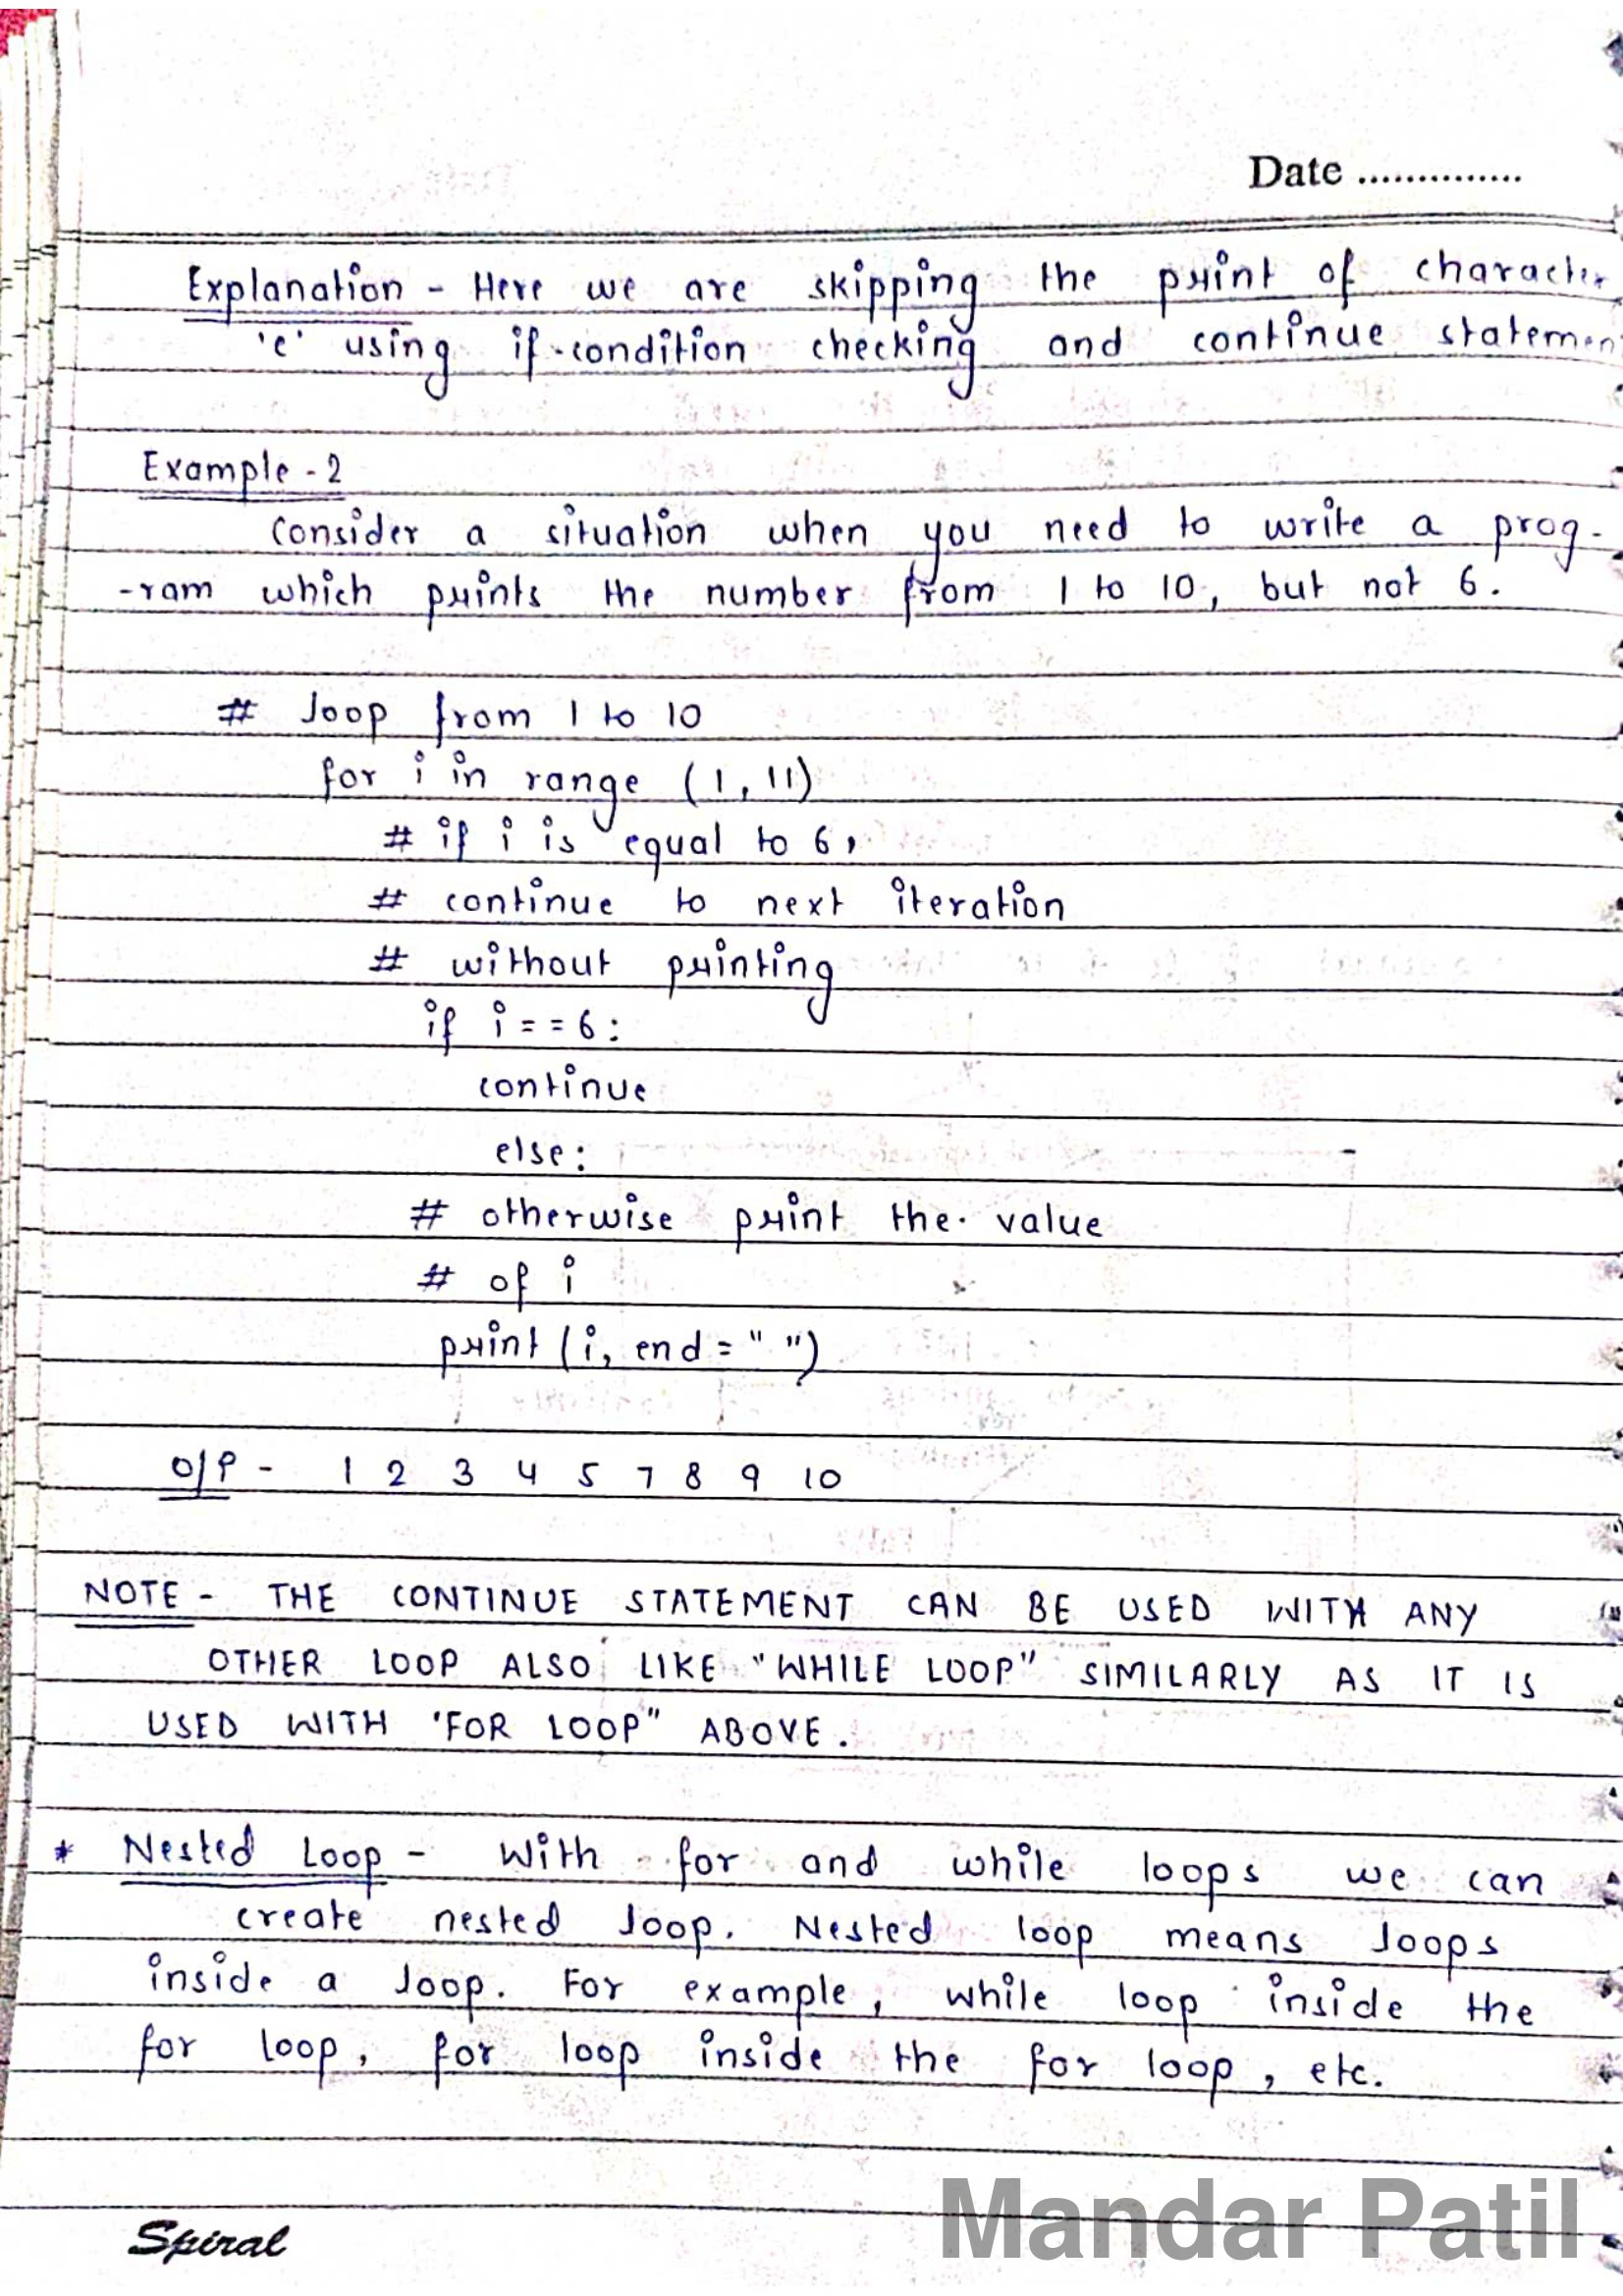 Date ..............
Explanation - Here we are skipping the print of character
'e' using if-condition checking and continue statemen
Example - 2
Consider a situation when you need to write a prog-
-ram which prints the number from 1 to 10, but not 6.
# loop from 1 to 10
for i in range (1, 11)
# if i is equal to 6,
# continue to next iteration
# without printing
if i == 6:
continue
else:
# otherwise print the value
# of i
print (i, end = " ")
O/P - 1 2 3 4 5 7 8 9 10
NOTE - THE CONTINUE STATEMENT CAN BE USED WITH ANY
OTHER LOOP ALSO LIKE "WHILE LOOP" SIMILARLY AS IT IS
USED WITH 'FOR LOOP" ABOVE.
* Nested Loop - With for and while loops we can
create nested loop. Nested loop means loops
inside a loop. For example, while loop inside the
for loop, for loop inside the for loop, etc.
Spiral
Mandar Patil